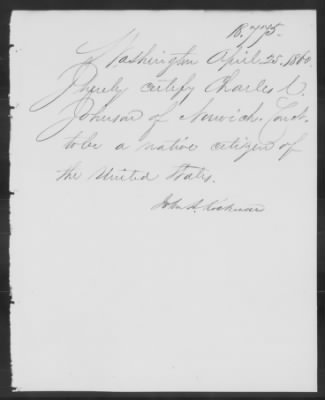 B. 775.
Washington April 25. 1860.
I hereby certify Charles C.
Johnson of Norwich. Conct.
to be a native citizen of
the United States.
John A.